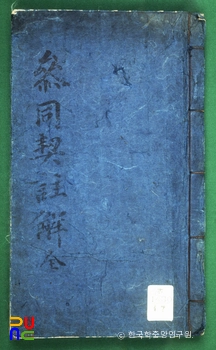 叅同契註解 全
© 한국학중앙연구원